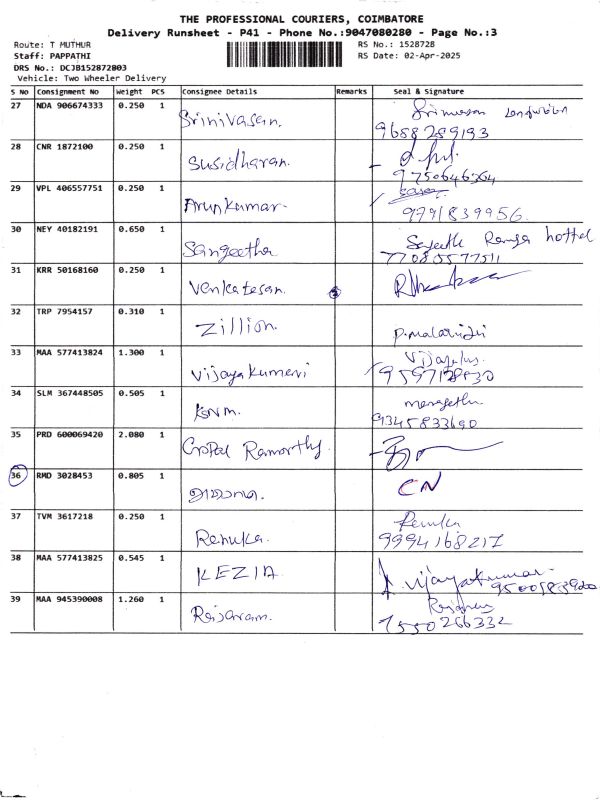 THE PROFESSIONAL COURIERS, COIMBATORE
Delivery Runsheet - P41 - Phone No.:9047080280 - Page No.:3
Route: T MUTHUR RS No.: 1528728
Staff: PAPPATHI RS Date: 02-Apr-2025
DRS No.: DCJB152872803
Vehicle: Two Wheeler Delivery
S No Consignment No Weight PCS Consignee Details Remarks Seal & Signature
27 NDA 906674333 0.250 1
Srinivasan.
9688289193
28 CNR 1872100 0.250 1
Susidharan.
9750646364
29 VPL 406557751 0.250 1
Arunkumar.
9791839956
30 NEY 40182191 0.650 1
Sangeetha
31 KRR 50168160 0.250 1
Venkatesan.
32 TRP 7954157 0.310 1
Zillion.
33 MAA 577413824 1.300 1
Vijayakumari
34 SLM 367448505 0.505 1
KNM.
9345833690
35 PRD 600069420 2.080 1
Gopal Ramorthy.
36 RMD 3028453 0.805 1
CN
37 TVM 3617218 0.250 1
Renuka. Renuka
9994168217
38 MAA 577413825 0.545 1
KEZIA. vijayakumar
39 MAA 945390008 1.260 1
Rajaram.
7550266332